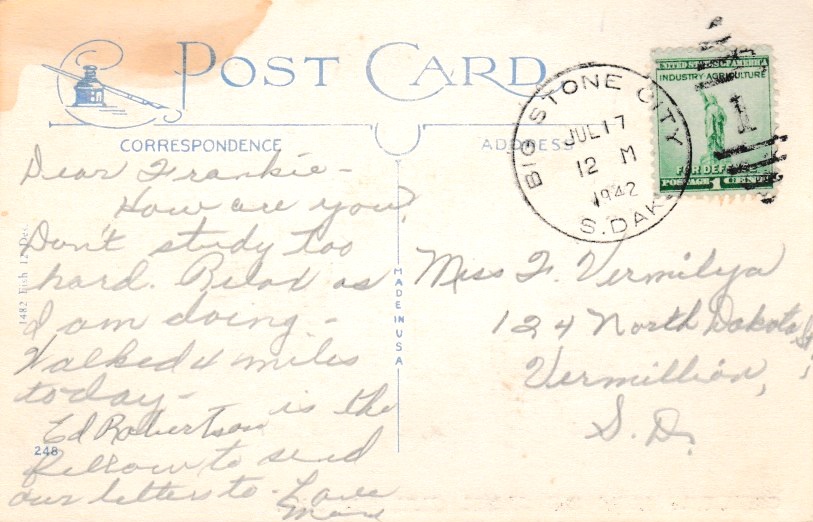 POST CARD
CORRESPONDENCE
ADDRESS
BIG STONE CITY
JUL 17
12 M
1942
S. DAK
UNITED STATES OF AMERICA
INDUSTRY AGRICULTURE
FOR DEFENSE
POSTAGE 1 CENT
1
Dear Frankie -
How are you?
Don't study too
hard. Relax as
I am doing -
Walked 4 miles
today -
Ed Robertson is the
fellow to send
our letters to. Love
MADE IN USA
1482 Fish
248
Miss F. Vermilya
124 North Dakota St
Vermillion,
S. D.